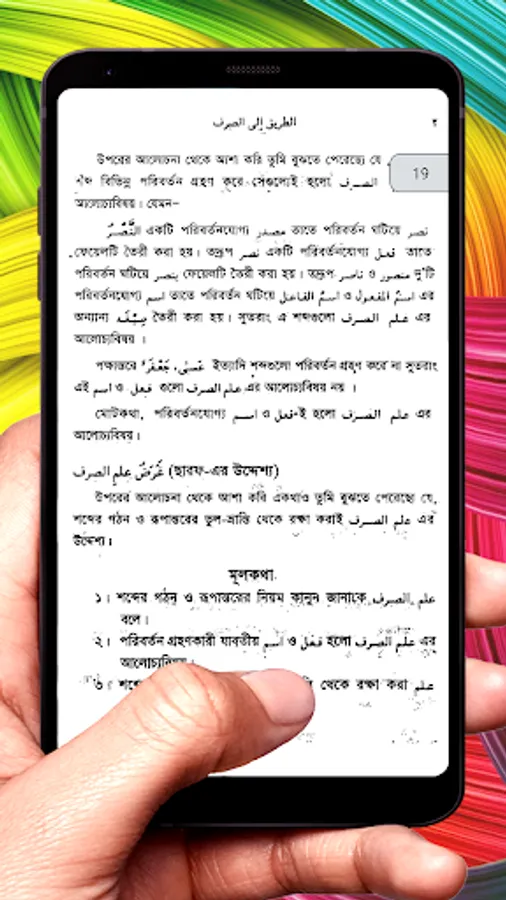 الطريق إلى الصرف ٢
19
উপরের আলোচনা থেকে আশা করি তুমি বুঝতে পেরেছো যে
বিভিন্ন পরিবর্তন গ্রহণ করে সেগুলোই হলো علم الصرف
আলোচ্যবিষয়। যেমন–
النَّصْرُ একটি পরিবর্তনযোগ্য مصدر তাতে পরিবর্তন ঘটিয়ে نصر
ফেয়েলটি তৈরী করা হয়। তদ্রূপ نصر একটি পরিবর্তনযোগ্য فعل তাতে
পরিবর্তন ঘটিয়ে ينصر ফেয়েলটি তৈরী করা হয়। তদ্রূপ ناصر ও منصور দু'টি
পরিবর্তনযোগ্য اسم তাতে পরিবর্তন ঘটিয়ে اسم الفاعل ও اسم المفعول এর
অন্যান্য صيغة তৈরী করা হয়। সুতরাং এ শব্দগুলো علم الصرف এর
আলোচ্যবিষয়।
পক্ষান্তরে عسى, جعفر ইত্যাদি শব্দগুলো পরিবর্তন গ্রহণ করে না সুতরাং
এই اسم ও فعل গুলো علم الصرف এর আলোচ্যবিষয় নয়।
মোটকথা, পরিবর্তনযোগ্য اسم ও فعل-ই হলো علم الصرف এর
আলোচ্যবিষয়।
غَرَضُ علم الصرف (ছারফ-এর উদ্দেশ্য)
উপরের আলোচনা থেকে আশা করি একথাও তুমি বুঝতে পেরেছো যে,
শব্দের গঠন ও রূপান্তরের ভুল-ভ্রান্তি থেকে রক্ষা করাই علم الصرف এর
উদ্দেশ্য।
মূলকথা
১। শব্দের গঠন ও রূপান্তরের নিয়ম কানুন জানাকে علم الصرف
বলে।
২। পরিবর্তন গ্রহণকারী যাবতীয় اسم ও فعل হলো علم الصرف এর
আলোচ্যবিষয়।
৩। থেকে রক্ষা করা علم